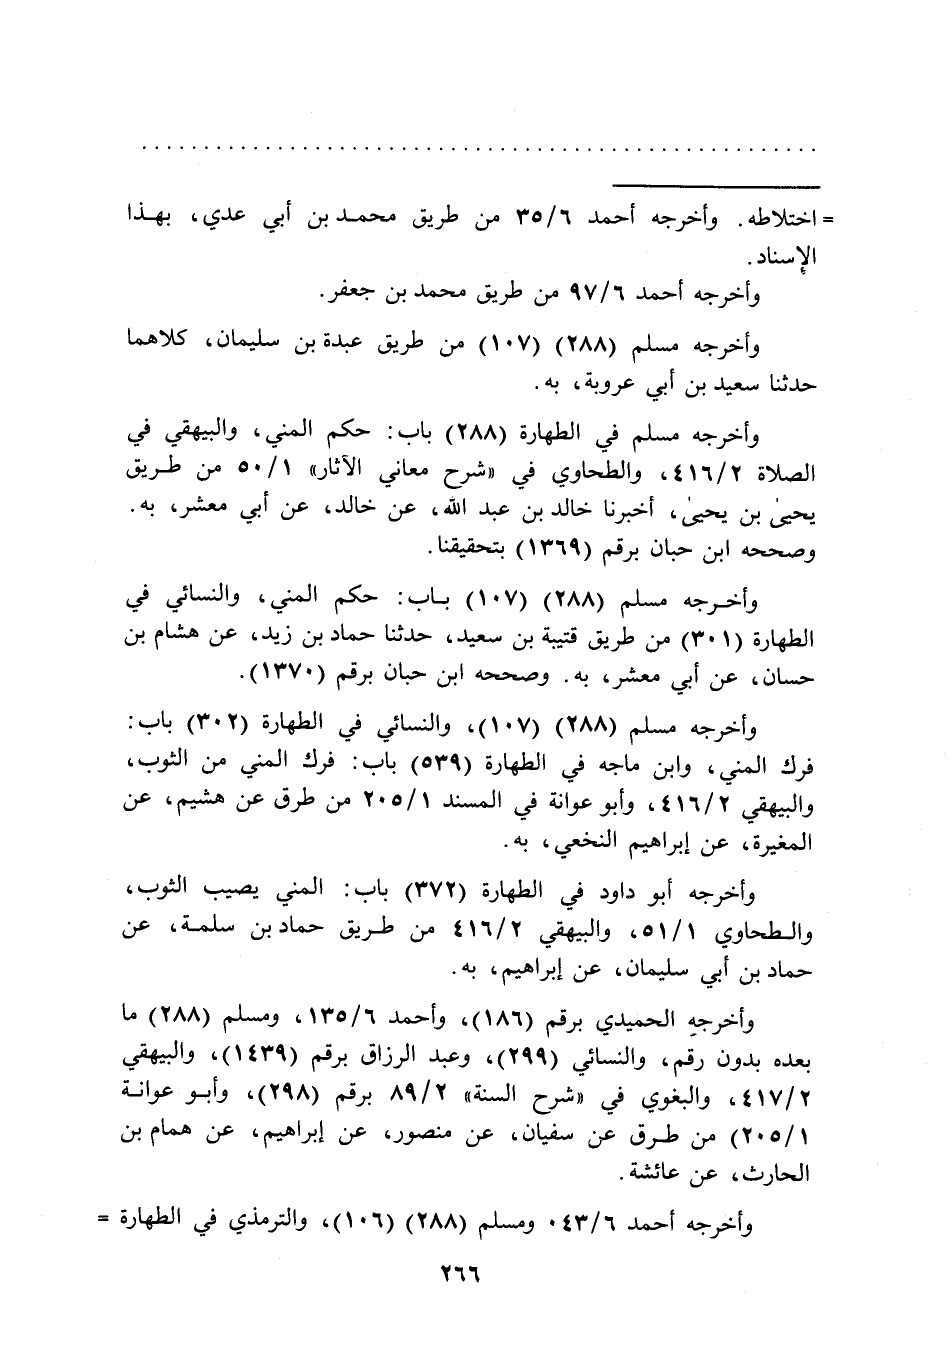 = اختلاطه. وأخرجه أحمد ٣٥/٦ من طريق محمد بن أبي عدي، بهذا
الإسناد.
وأخرجه أحمد ٩٧/٦ من طريق محمد بن جعفر.
وأخرجه مسلم (٢٨٨) (١٠٧) من طريق عبدة بن سليمان، كلاهما
حدثنا سعيد بن أبي عروبة، به.
وأخرجه مسلم في الطهارة (٢٨٨) باب: حكم المني، والبيهقي في
الصلاة ٤١٦/٢، والطحاوي في «شرح معاني الآثار» ٥٠/١ من طريق
يحيىٰ بن يحيىٰ، أخبرنا خالد بن عبد الله، عن خالد، عن أبي معشر، به.
وصححه ابن حبان برقم (١٣٦٩) بتحقيقنا.
وأخرجه مسلم (٢٨٨) (١٠٧) باب: حكم المني، والنسائي في
الطهارة (٣٠١) من طريق قتيبة بن سعيد، حدثنا حماد بن زيد، عن هشام بن
حسان، عن أبي معشر، به. وصححه ابن حبان برقم (١٣٧٠).
وأخرجه مسلم (٢٨٨) (١٠٧)، والنسائي في الطهارة (٣٠٢) باب:
فرك المني، وابن ماجه في الطهارة (٥٣٩) باب: فرك المني من الثوب،
والبيهقي ٤١٦/٢، وأبو عوانة في المسند ٢٠٥/١ من طرق عن هشيم، عن
المغيرة، عن إبراهيم النخعي، به.
وأخرجه أبو داود في الطهارة (٣٧٢) باب: المني يصيب الثوب،
والطحاوي ٥١/١، والبيهقي ٤١٦/٢ من طريق حماد بن سلمة، عن
حماد بن أبي سليمان، عن إبراهيم، به.
وأخرجه الحميدي برقم (١٨٦)، وأحمد ١٣٥/٦، ومسلم (٢٨٨) ما
بعده بدون رقم، والنسائي (٢٩٩)، وعبد الرزاق برقم (١٤٣٩)، والبيهقي
٤١٧/٢، والبغوي في «شرح السنة» ٨٩/٢ برقم (٢٩٨)، وأبو عوانة
٢٠٥/١) من طرق عن سفيان، عن منصور، عن إبراهيم، عن همام بن
الحارث، عن عائشة.
وأخرجه أحمد ٠٤٣/٦ ومسلم (٢٨٨) (١٠٦)، والترمذي في الطهارة =
٢٦٦